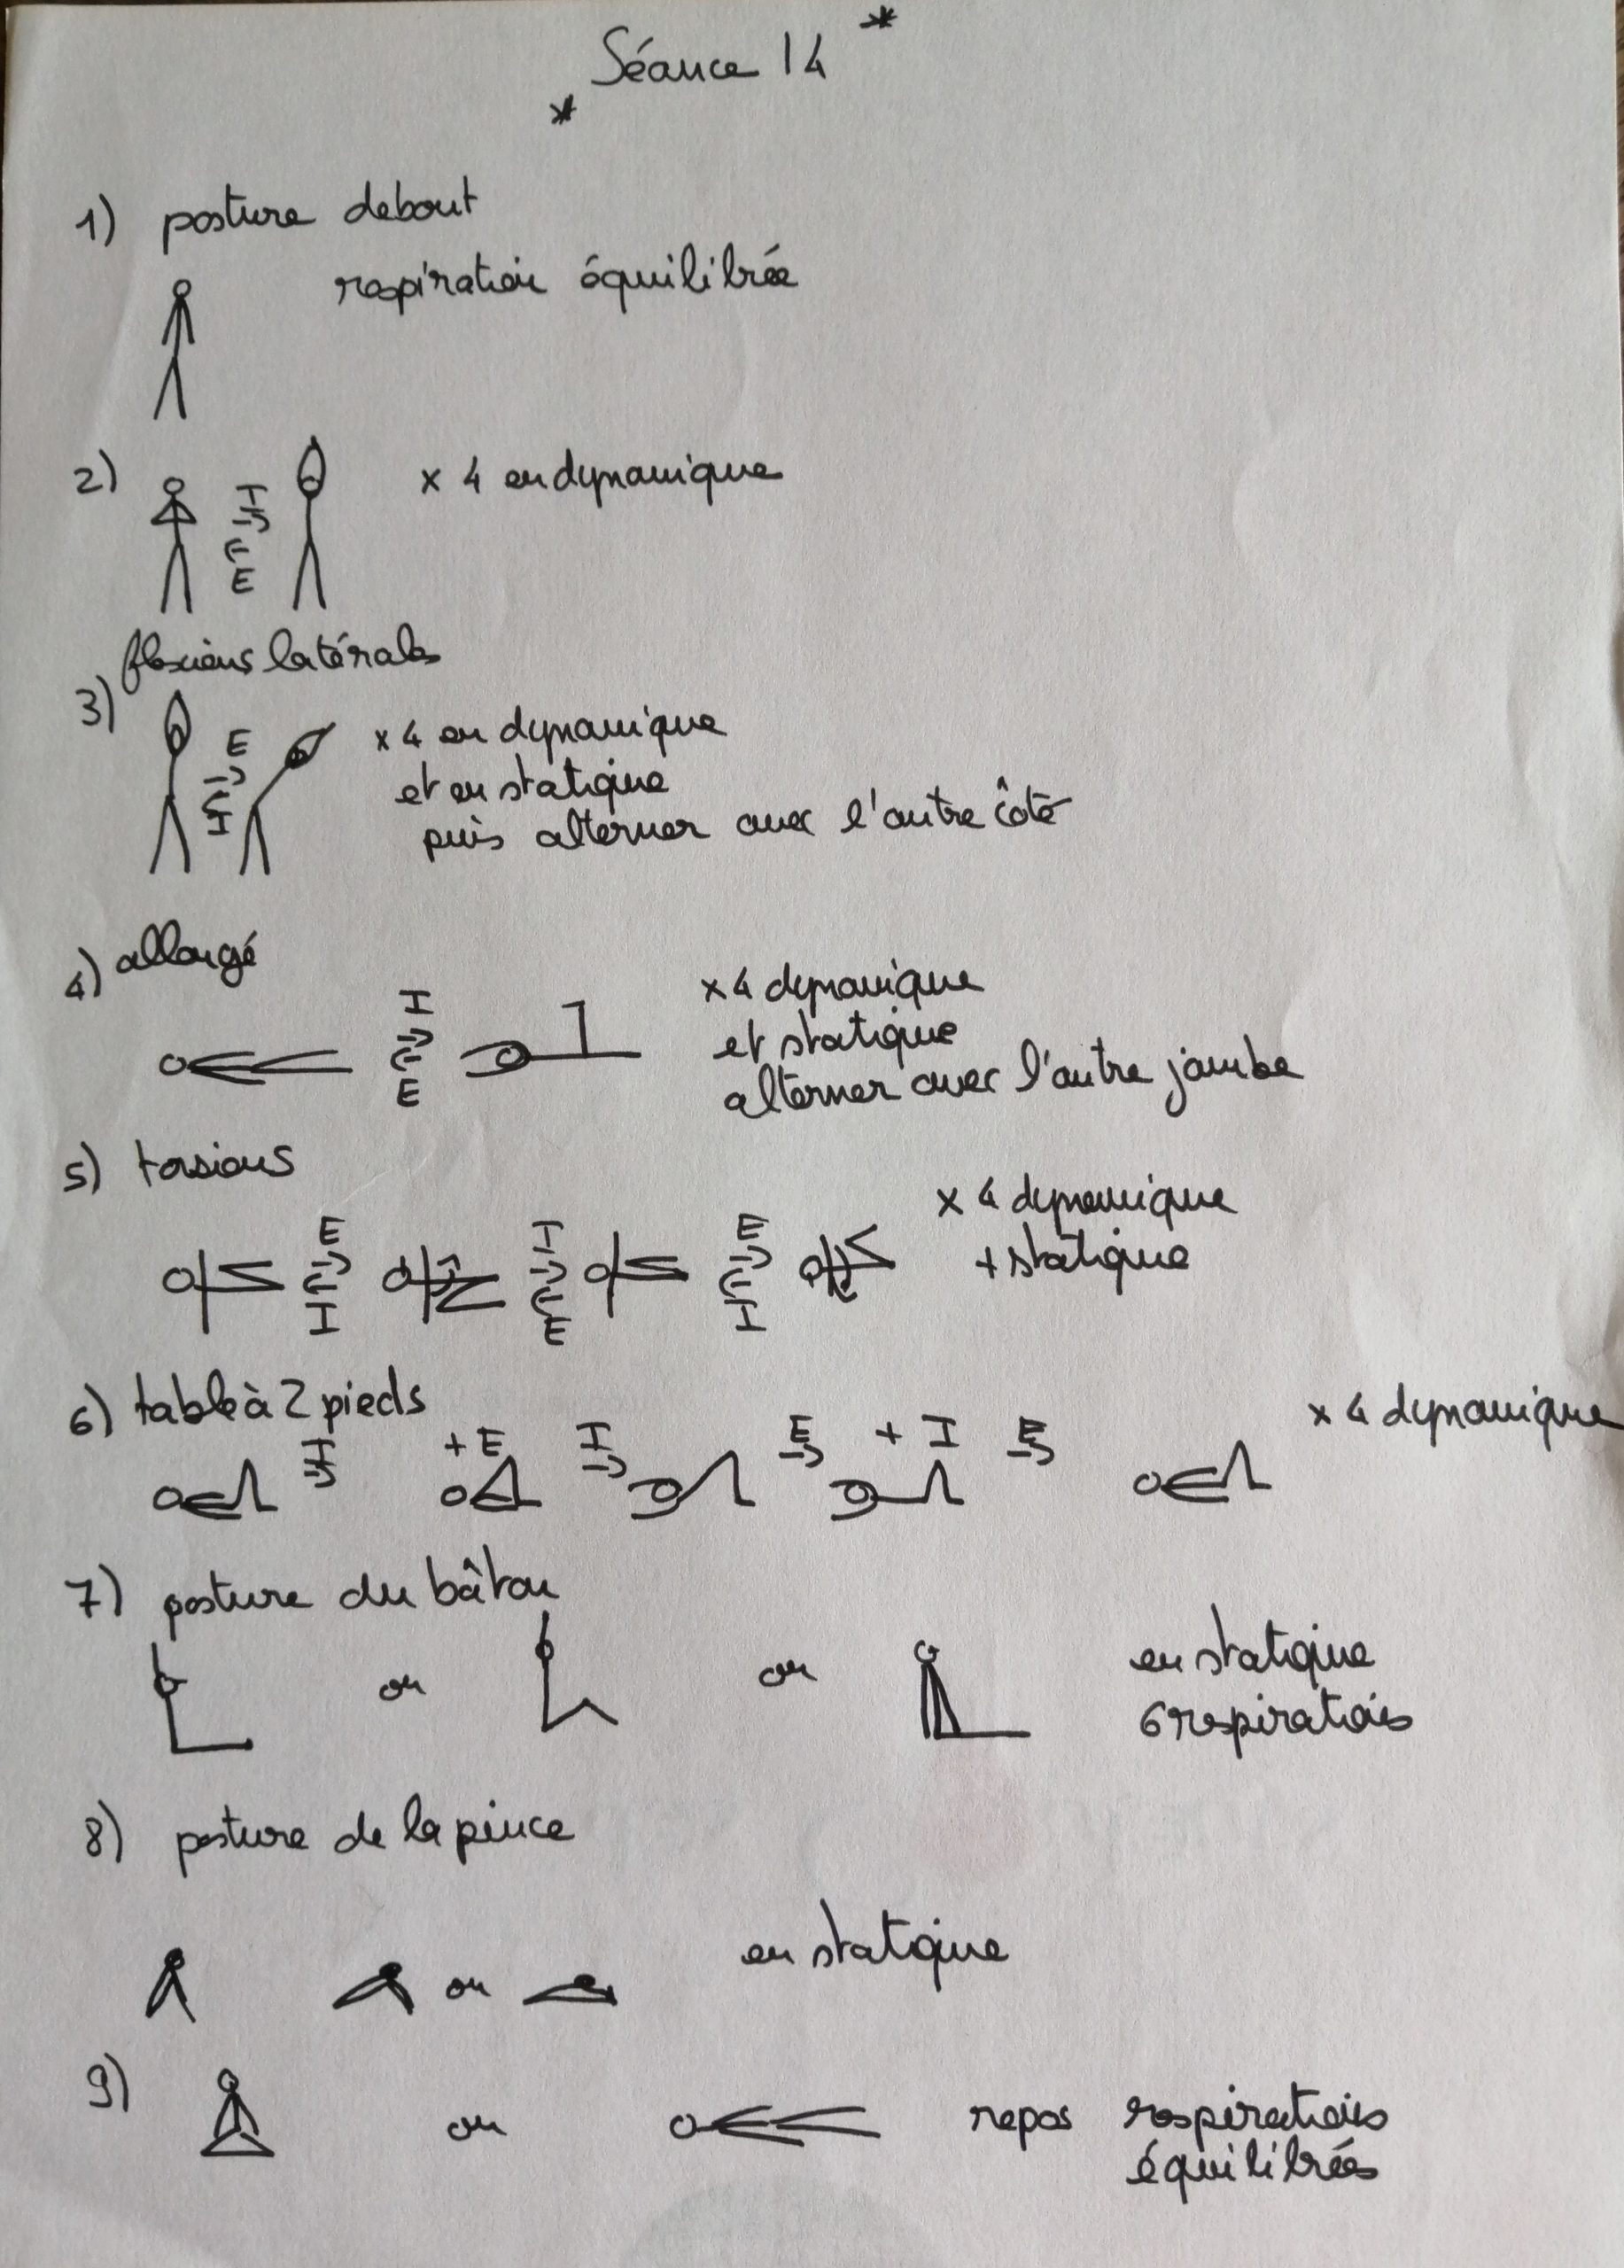 Séance 14
1) posture debout
respiration équilibrée
2) I E x 4 en dynamique
flexions latérales
3) E I x 4 en dynamique
et en statique
puis alterner avec l'autre côté
4) allongé
I E x 4 dynamique
et statique
alterner avec l'autre jambe
5) torsions
E I I E E I x 4 dynamique
+ statique
6) table à 2 pieds
I + E I E + I E x 4 dynamique
7) posture du bâton
ou ou en statique
6 respirations
8) posture de la pince
ou en statique
9) ou repos respirations
équilibrées